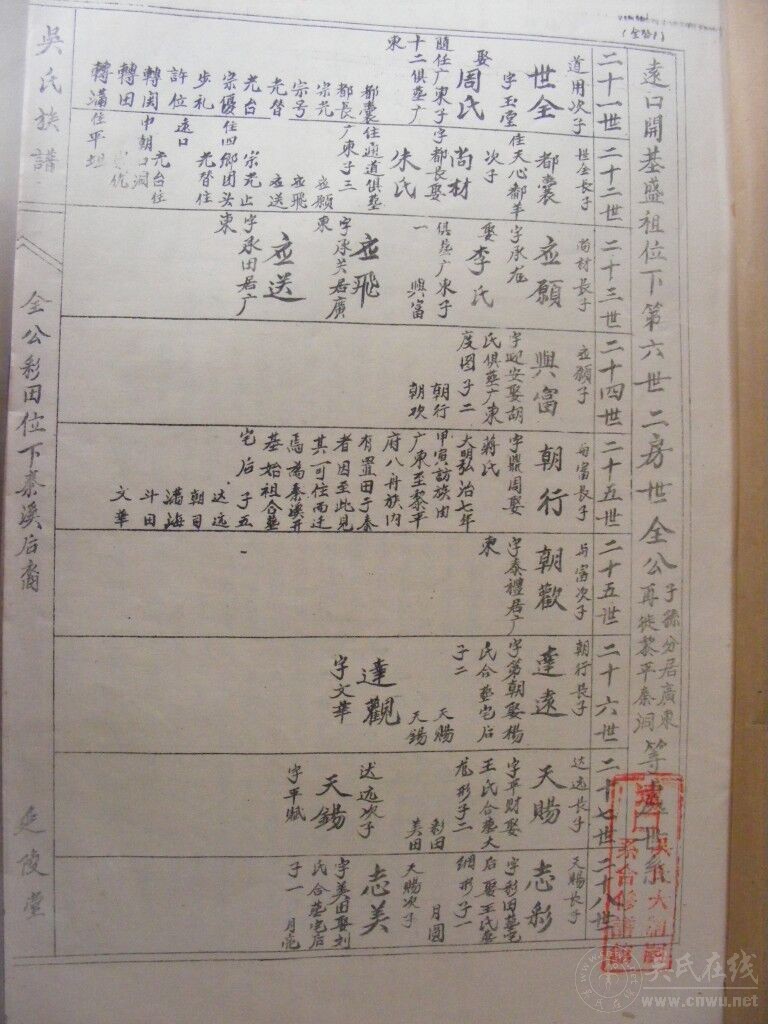 遠口開基盛祖位下第六世二房世全公子孫分居廣東再徙黎平秦洞等處世系
二十一世
道用次子
世全
字玉堂
娶
周氏
隨任广東子
十二俱塟广
東
二十二世
世全長子
都囊
住天心都羊
次子
尚材
字都長娶
朱氏
都囊住通道俱塟
都長广東子三
宗光 应願
宗号 应飛
光替 应送
光台 宗光止
宗優住四鄉团头
步札 光替住
許位 遠口
轉闵 光台住
轉田 中朝口洞
轉滿住平坦
二十三世
尚材長子
应願
字承龙
娶
李氏
俱塟广東子
一 興富
应飛
字承关居廣
東
应送
字承田居广
東
二十四世
应願子
興富
字迎安娶胡
氏俱塟广東
度团子二
朝行
朝欢
二十五世
與富長子
朝行
字鼎周娶
蒋氏
大明弘治七年
甲寅訪族由
广東至黎平
府八舟族内
有置田于秦
者因至此見
其可住而迁
焉為秦溪开
基始祖合塟
宅后 子五
达远
朝目
满海
斗田
文華
二十五世
与富次子
朝歡
字泰禮居广
東
二十六世
朝行長子
達遠
字第朝娶楊
氏合塟宅后
子二
天賜
天錫
達觀
字文華
二十七世
达远長子
天賜
字平財娶
王氏合塟大
龙形子二
彩田
美田
达远次子
天錫
字平赋
二十八世
天賜長子
志彩
字彩田塟宅
后娶王氏塟
網形子一
月圆
天賜次子
志美
字美田娶刘
氏合塟宅后
子一 月亮
吳氏族譜
全公彩田位下秦溪后裔
延陵堂
吴氏在线
www.cnwu.net